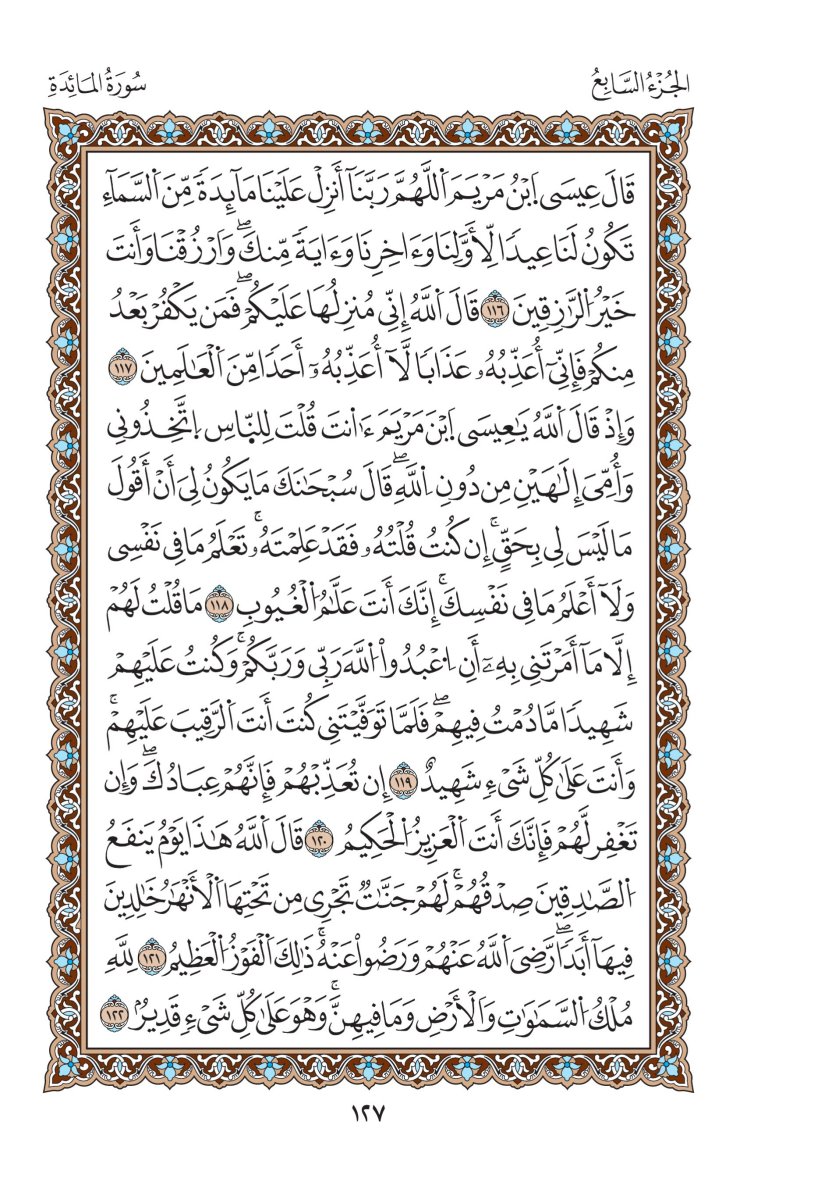 الجُزْءُ السَّابِعُ
سُورَةُ المَائِدَةِ
قَالَ عِيسَى اَبْنُ مَرْيَمَ اَللَّهُمَّ رَبَّنَآ أَنزِلْ عَلَيْنَا مَآئِدَةً مِّنَ اَلسَّمَآءِ
تَكُونُ لَنَا عِيدًا لِّأَوَّلِنَا وَءَاخِرِنَا وَءَايَةً مِّنكَۖ وَارْزُقْنَا وَأَنتَ
خَيْرُ اُلرَّٰزِقِينَ ١١٦ قَالَ اَللَّهُ إِنِّي مُنزِلُهَا عَلَيْكُمْۖ فَمَن يَكْفُرْ بَعْدُ
مِنكُمْ فَإِنِّيَ أُعَذِّبُهُۥ عَذَابًا لَّآ أُعَذِّبُهُۥٓ أَحَدًا مِّنَ اَلْعَٰلَمِينَ ١١٧
وَإِذْ قَالَ اَللَّهُ يَٰعِيسَى اَبْنَ مَرْيَمَ ءَا۬نتَ قُلْتَ لِلنَّاسِ اِتَّخِذُونِي
وَأُمِّيَ إِلَٰهَيْنِ مِن دُونِ اِللَّهِۖ قَالَ سُبْحَٰنَكَ مَا يَكُونُ لِيَ أَنْ أَقُولَ
مَا لَيْسَ لِي بِحَقٍّۚ إِن كُنتُ قُلْتُهُۥ فَقَدْ عَلِمْتَهُۥۚ تَعْلَمُ مَا فِي نَفْسِي
وَلَآ أَعْلَمُ مَا فِي نَفْسِكَۚ إِنَّكَ أَنتَ عَلَّٰمُ اُلْغُيُوبِ ١١٨ مَا قُلْتُ لَهُمْ
إِلَّا مَآ أَمَرْتَنِي بِهِۦٓ أَنِ اِعْبُدُواْ اُللَّهَ رَبِّي وَرَبَّكُمْۚ وَكُنتُ عَلَيْهِمْ
شَهِيدًا مَّا دُمْتُ فِيهِمْۖ فَلَمَّا تَوَفَّيْتَنِي كُنتَ أَنتَ اَلرَّقِيبَ عَلَيْهِمْۚ
وَأَنتَ عَلَىٰ كُلِّ شَيْءٍ شَهِيدٌ ١١٩ إِن تُعَذِّبْهُمْ فَإِنَّهُمْ عِبَادُكَۖ وَإِن
تَغْفِر لَّهُمْ فَإِنَّكَ أَنتَ اَلْعَزِيزُ اُلْحَكِيمُ ١٢٠ قَالَ اَللَّهُ هَٰذَا يَوْمُ يَنفَعُ
اُلصَّٰدِقِينَ صِدْقُهُمْۚ لَهُمْ جَنَّٰتٌ تَجْرِي مِن تَحْتِهَا اَلْأَنْهَٰرُ خَٰلِدِينَ
فِيهَآ أَبَدًاۖ رَّضِيَ اَللَّهُ عَنْهُمْ وَرَضُواْ عَنْهُۚ ذَٰلِكَ اَلْفَوْزُ اُلْعَظِيمُ ١٢١ لِلَّهِ
مُلْكُ اُلسَّمَٰوَٰتِ وَالْأَرْضِ وَمَا فِيهِنَّۚ وَهْوَ عَلَىٰ كُلِّ شَيْءٍ قَدِيرٌ ١٢٢
١٢٧